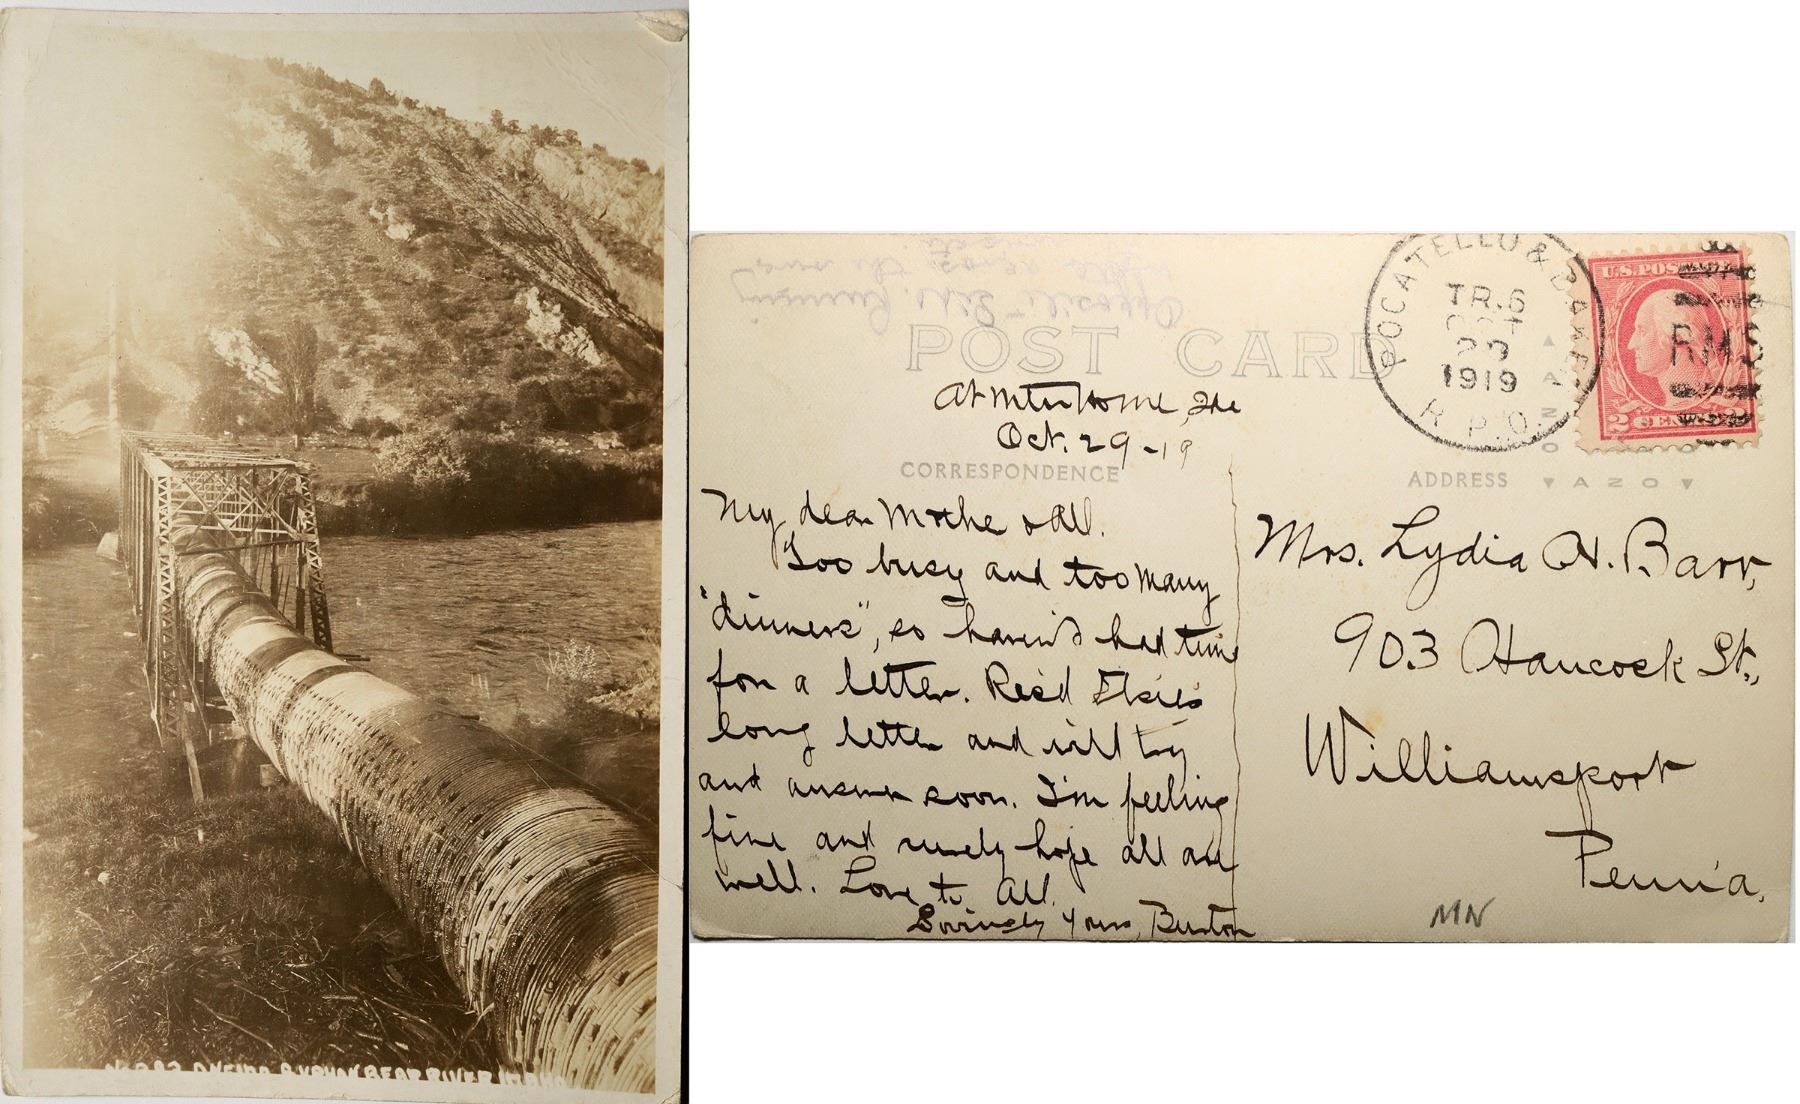 No 283 ONEIDA SYPHON BEAR RIVER IDAHO
POST CARD
POCATELLO & BAKER
TR.6
OCT
29
1919
R.P.O.
U.S. POSTAGE
2 CENTS 2
RMS
At Mtn Home, Ida
Oct. 29-19
CORRESPONDENCE
My dear Mother & All.
Too busy and too many
"dinners", so haven't had time
for a letter. Rec'd Elsie's
long letter and will try
and answer soon. I'm feeling
fine and surely hope all are
well. Love to All.
Lovingly Yours, Burton
ADDRESS
AZO
Mrs. Lydia H. Barr,
903 Hancock St.,
Williamsport
Penn'a.
MN